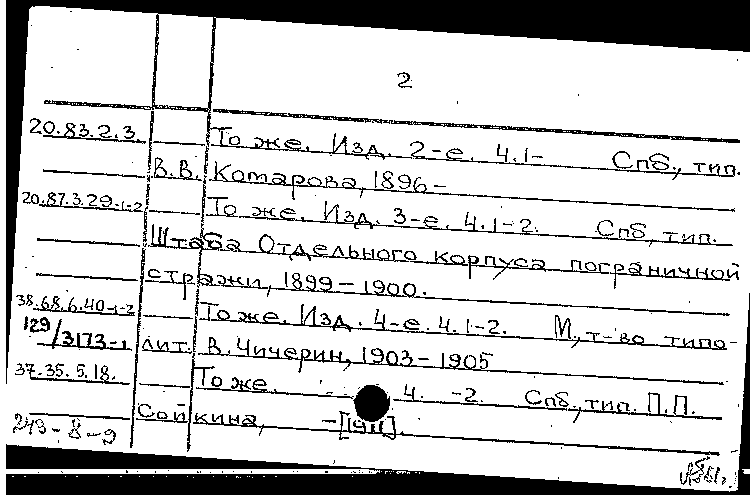 2
20.83.2.3. То же. Изд. 2-е. Ч.1- Спб., тип.
В.В. Комарова, 1896-
20.87.3.29-1-2 То же. Изд. 3-е. Ч.1-2. Спб, тип.
Штаба Отдельного корпуса пограничной
стражи, 1899-1900.
38.68.6.40-1-2 То же. Изд. 4-е. Ч.1-2. М, т-во типо-
129/3173-1 лит. В. Чичерин, 1903-1905
37.35.5.18. То же. Ч. -2. Спб., тип. П.П.
Сойкина, -[1911].
249-8-9